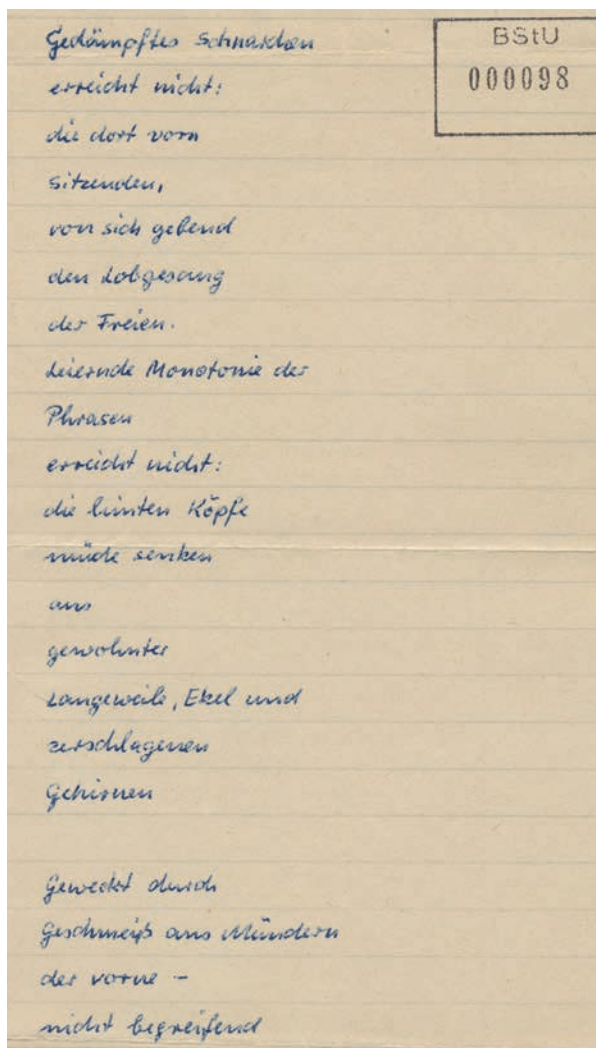 Gedämpftes Schnarchen
erreicht nicht:
die dort vorn
sitzenden,
von sich gebend
den Lobgesang
der Freien.
Leiernde Monotonie der
Phrasen
erreicht nicht:
die hinten Köpfe
müde senken
aus
gewohnter
Langeweile, Ekel und
zerschlagenen
Gehirnen
Geweckt durch
Geschmeiß aus Mündern
der vorne –
nicht begreifend
BStU
000098